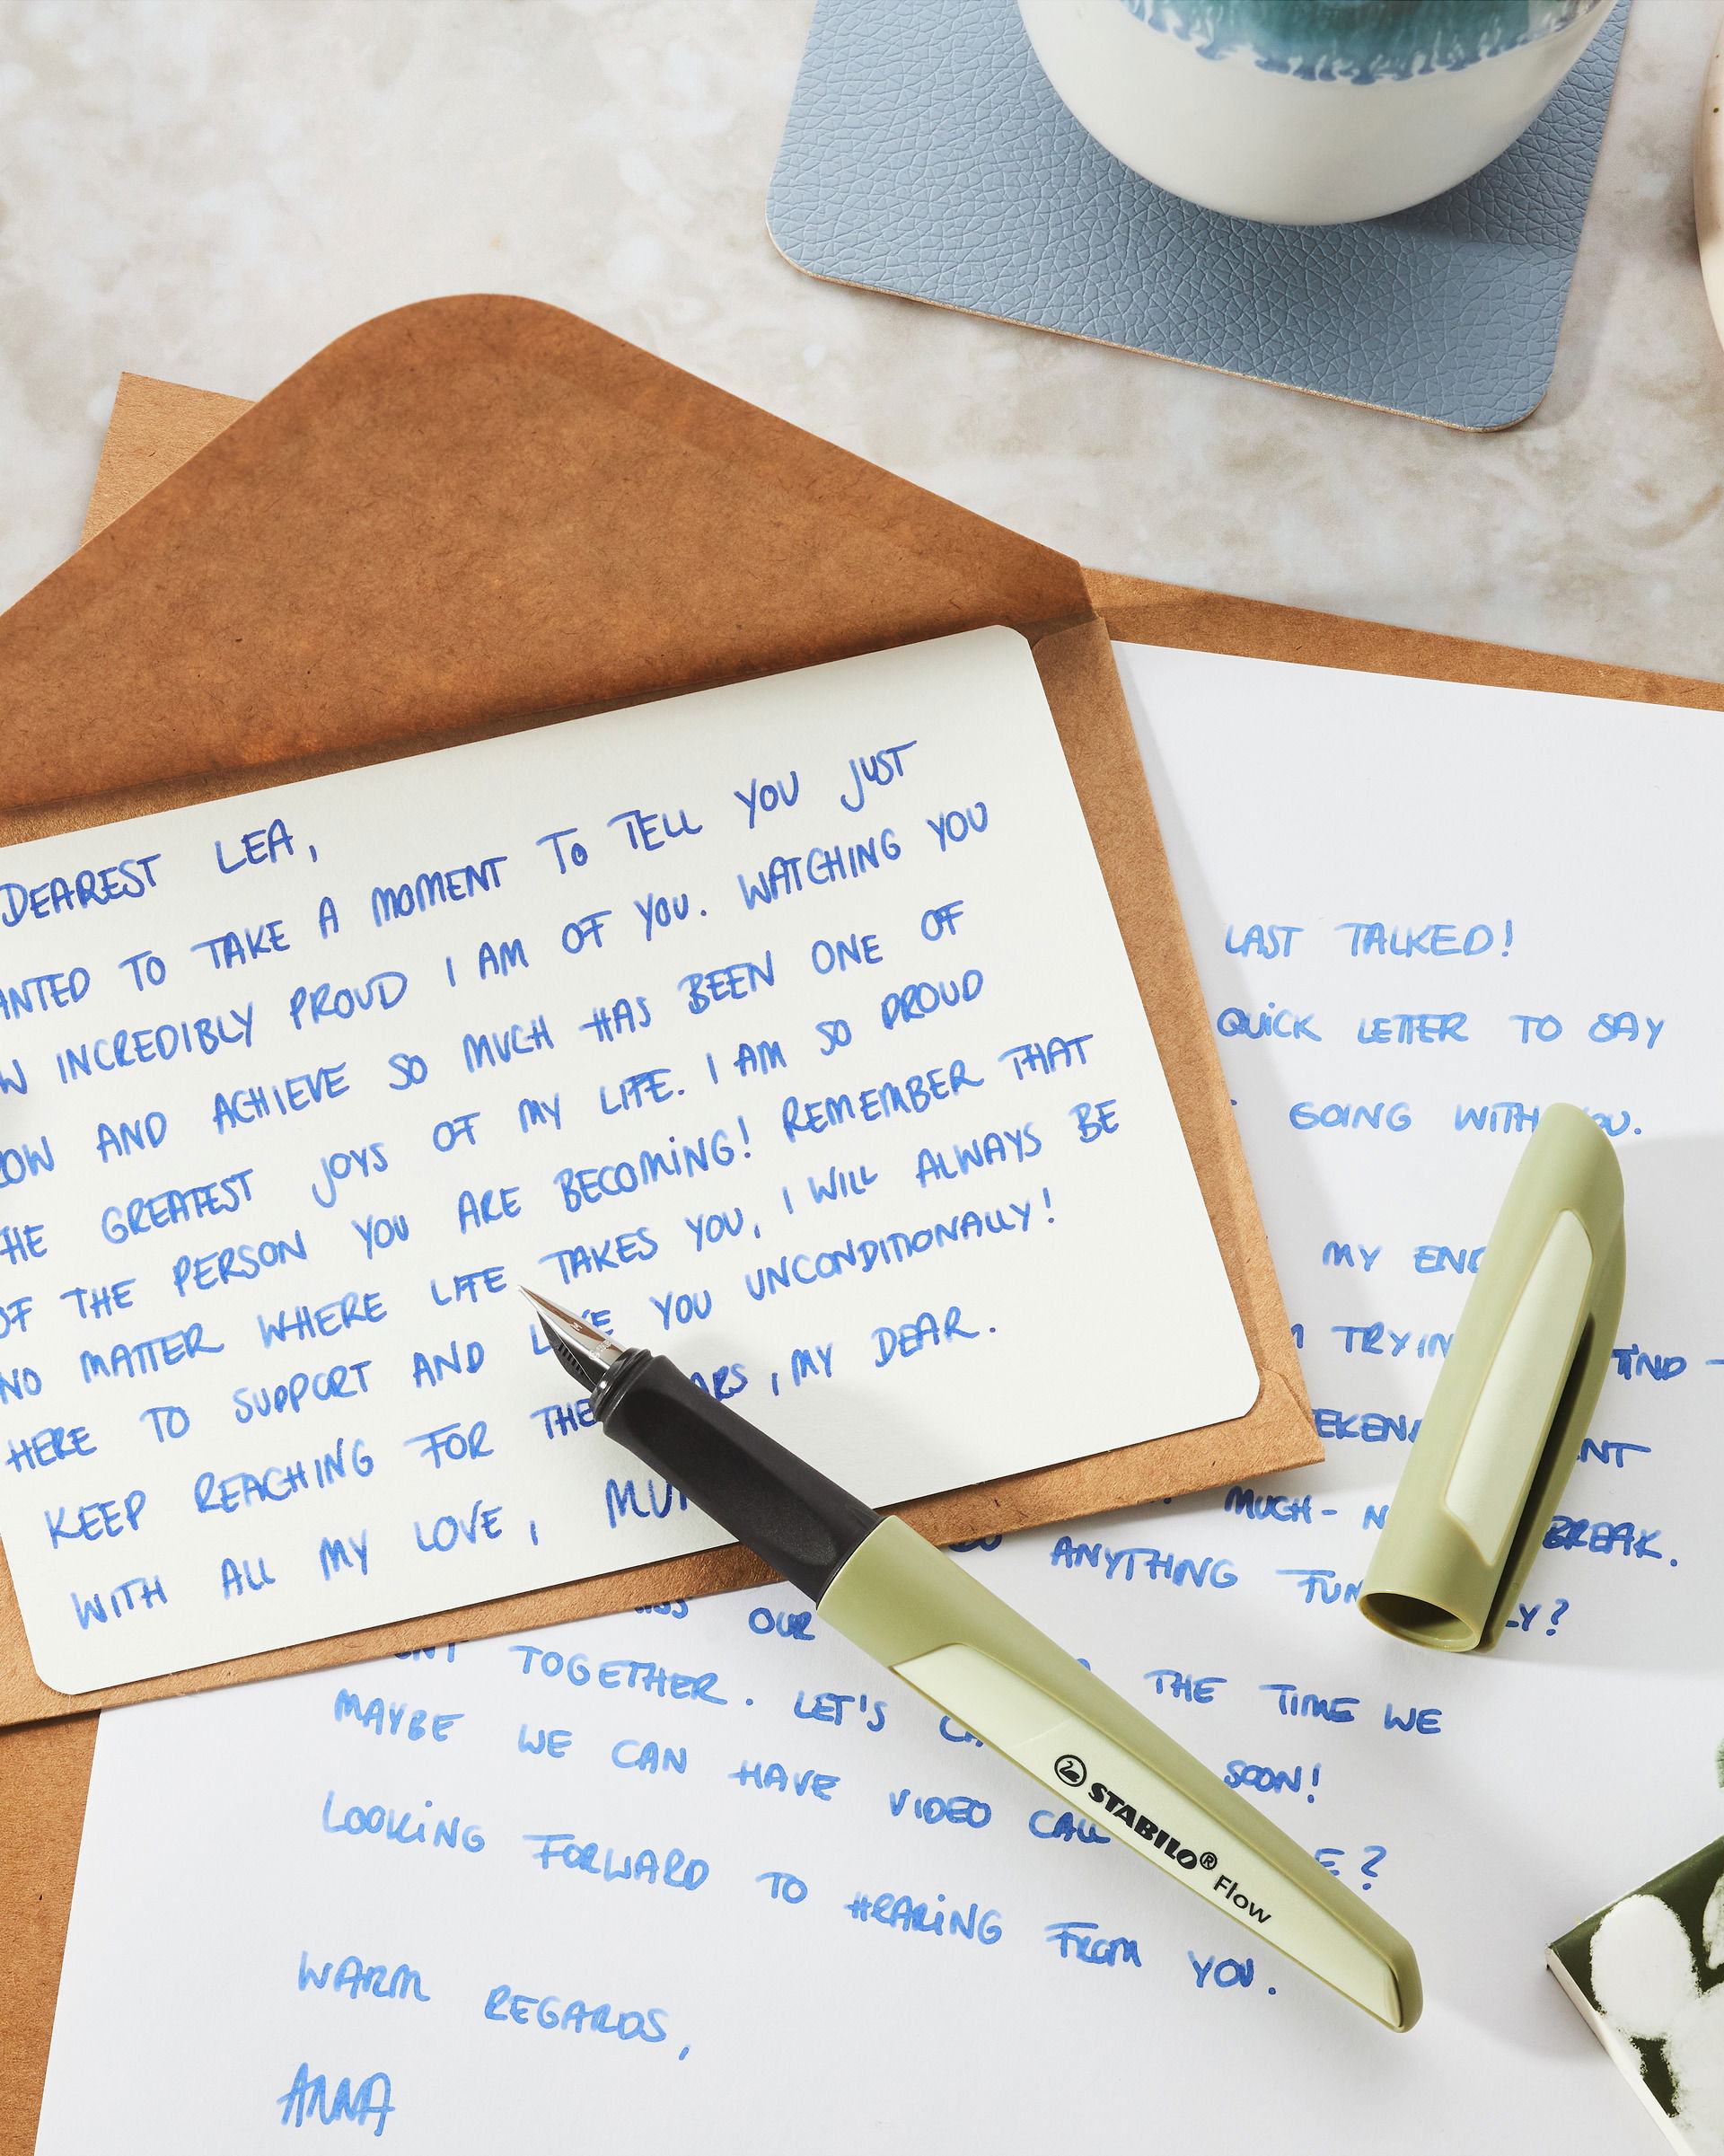 DEAREST LEA,
TO TAKE A MOMENT TO TELL YOU JUST
INCREDIBLY PROUD I AM OF YOU. WATCHING YOU
AND ACHIEVE SO MUCH HAS BEEN ONE OF
GREATEST JOYS OF MY LIFE. I AM SO PROUD
OF THE PERSON YOU ARE BECOMING! REMEMBER THAT
NO MATTER WHERE LIFE TAKES YOU, I WILL ALWAYS BE
HERE TO SUPPORT AND YOU UNCONDITIONALLY!
KEEP REACHING FOR , MY DEAR.
WITH ALL MY LOVE,
LAST TALKED!
QUICK LETTER TO SAY
GOING WITH
MY
MUCH- BREAK.
ANYTHING
OUR THE TIME WE
TOGETHER. LET'S SOON!
MAYBE WE CAN HAVE VIDEO CALL ?
LOOKING FORWARD TO HEARING FROM YOU.
WARM REGARDS,
ANNA
STABILO® Flow